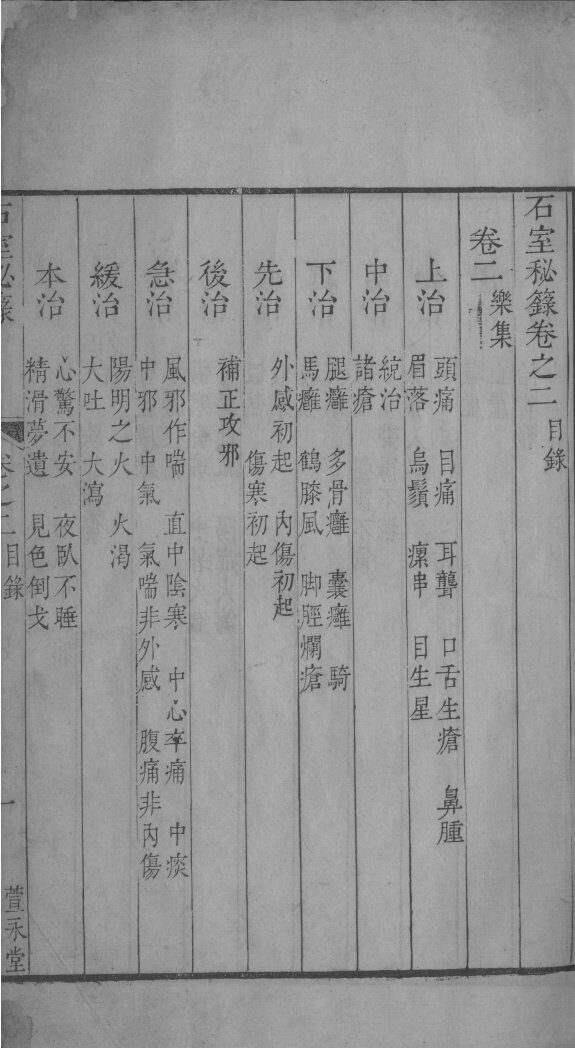 石室秘籙卷之二 目錄
卷二 樂集
上治 頭痛 目痛 耳聾 口舌生瘡 鼻腫
眉落 烏鬚 瘰串 目生星
中治 統治
諸瘡
下治 腿癰 多骨癰 囊癰 騎
馬癰 鶴膝風 脚脛爛瘡
先治 外感初起 內傷初起
傷寒初起
後治 補正攻邪
急治 風邪作喘 直中陰寒 中心卒痛 中痰
中邪 中氣 氣喘非外感 腹痛非內傷
緩治 陽明之火 火渴
大吐 大瀉
本治 心驚不安 夜臥不睡
精滑夢遺 見色倒戈
石室秘籙 卷之二目錄 一 萱永堂